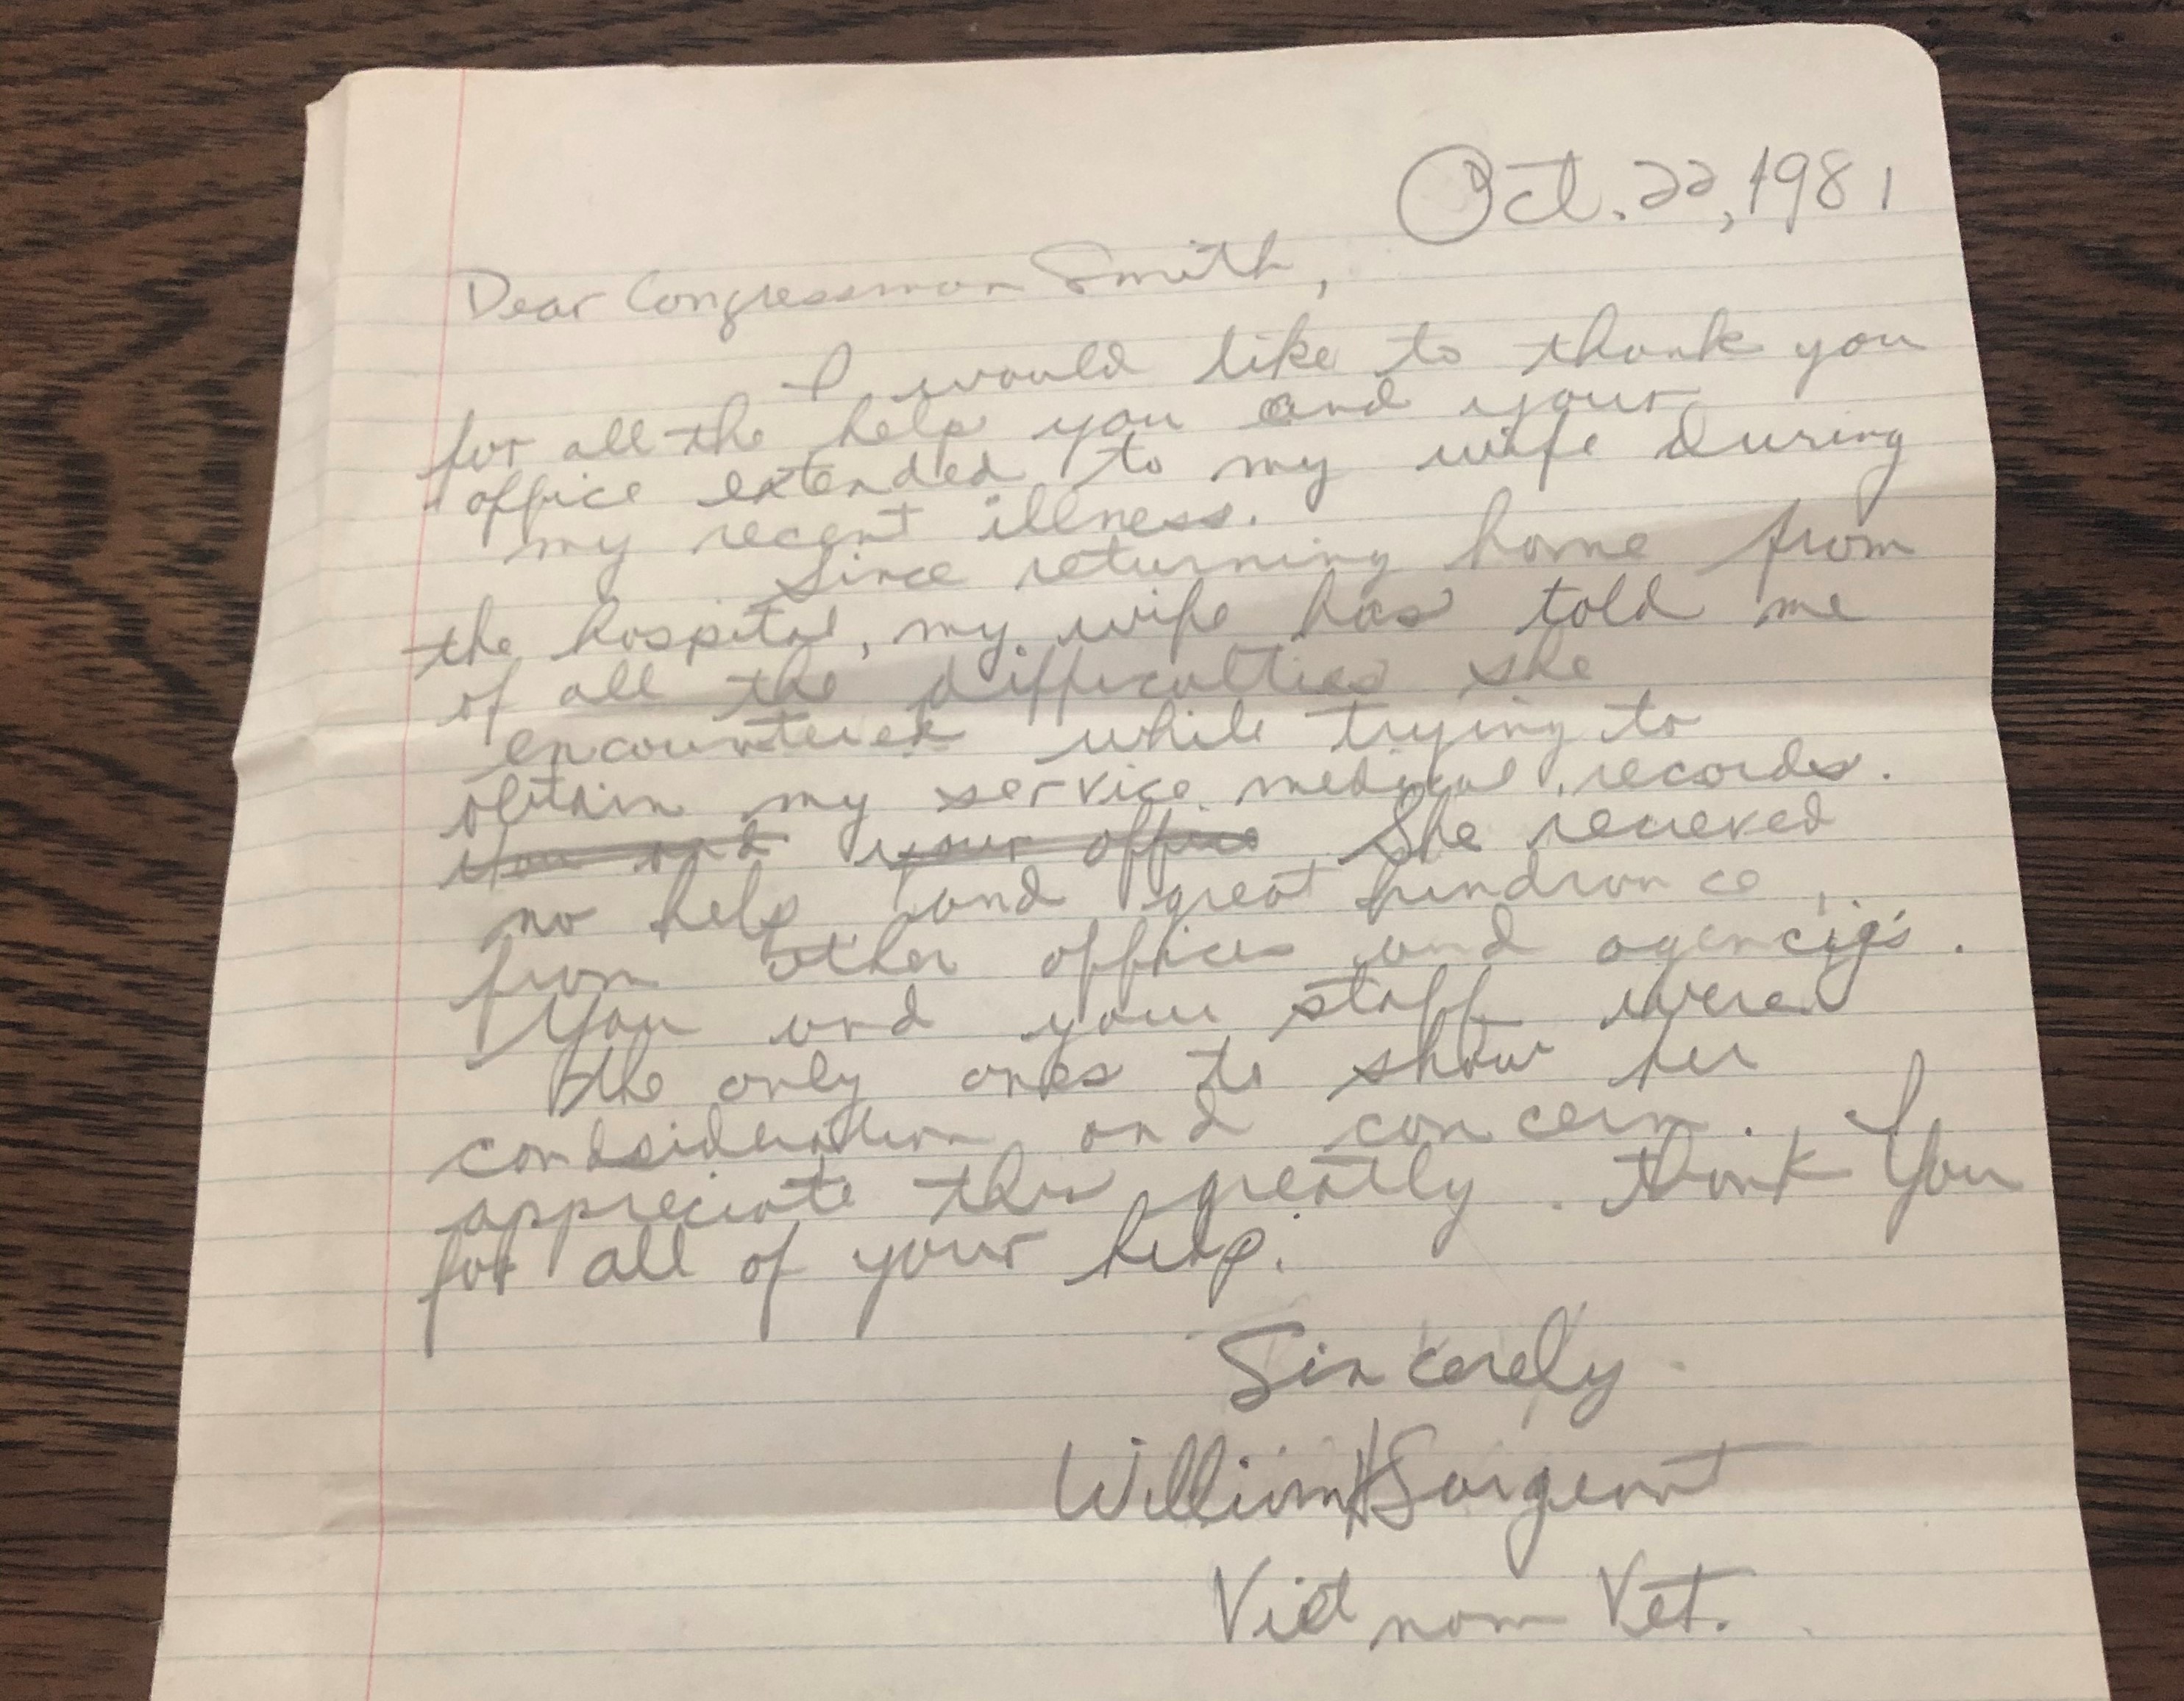 Oct. 22, 1981
Dear Congressman Smith,
I would like to thank you
for all the help you and your
office extended to my wife during
my recent illness.
Since returning home from
the hospital, my wife has told me
of all the difficulties she
encountered while trying to
obtain my service medical records.
You and your office She recieved
no help and great hindrance
from other offices and agencies.
You and your staff were
the only ones to show her
consideration and concern. I
appreciate this greatly. Thank You
for all of your help.
Sincerely
William H Sargent
Viet nam Vet.